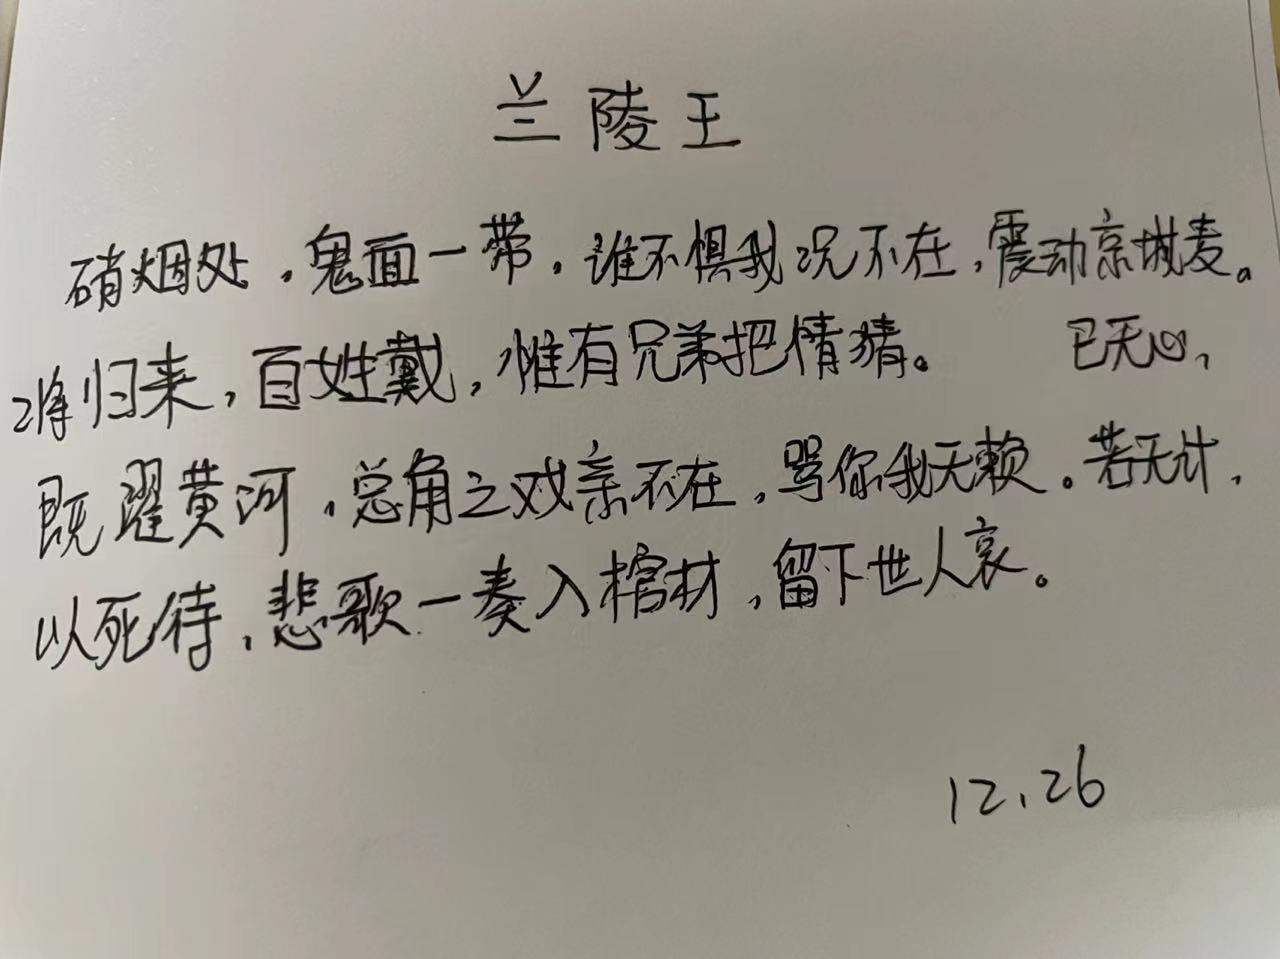 兰陵王
硝烟处，鬼面一带，谁不惧我况不在，震动京城麦。
将归来，百姓戴，惟有兄弟把情猜。 已无心，
既濯黄河，总角之戏亲不在，骂你我无赖。若无计，
以死待，悲歌一奏入棺材，留下世人哀。
12.26